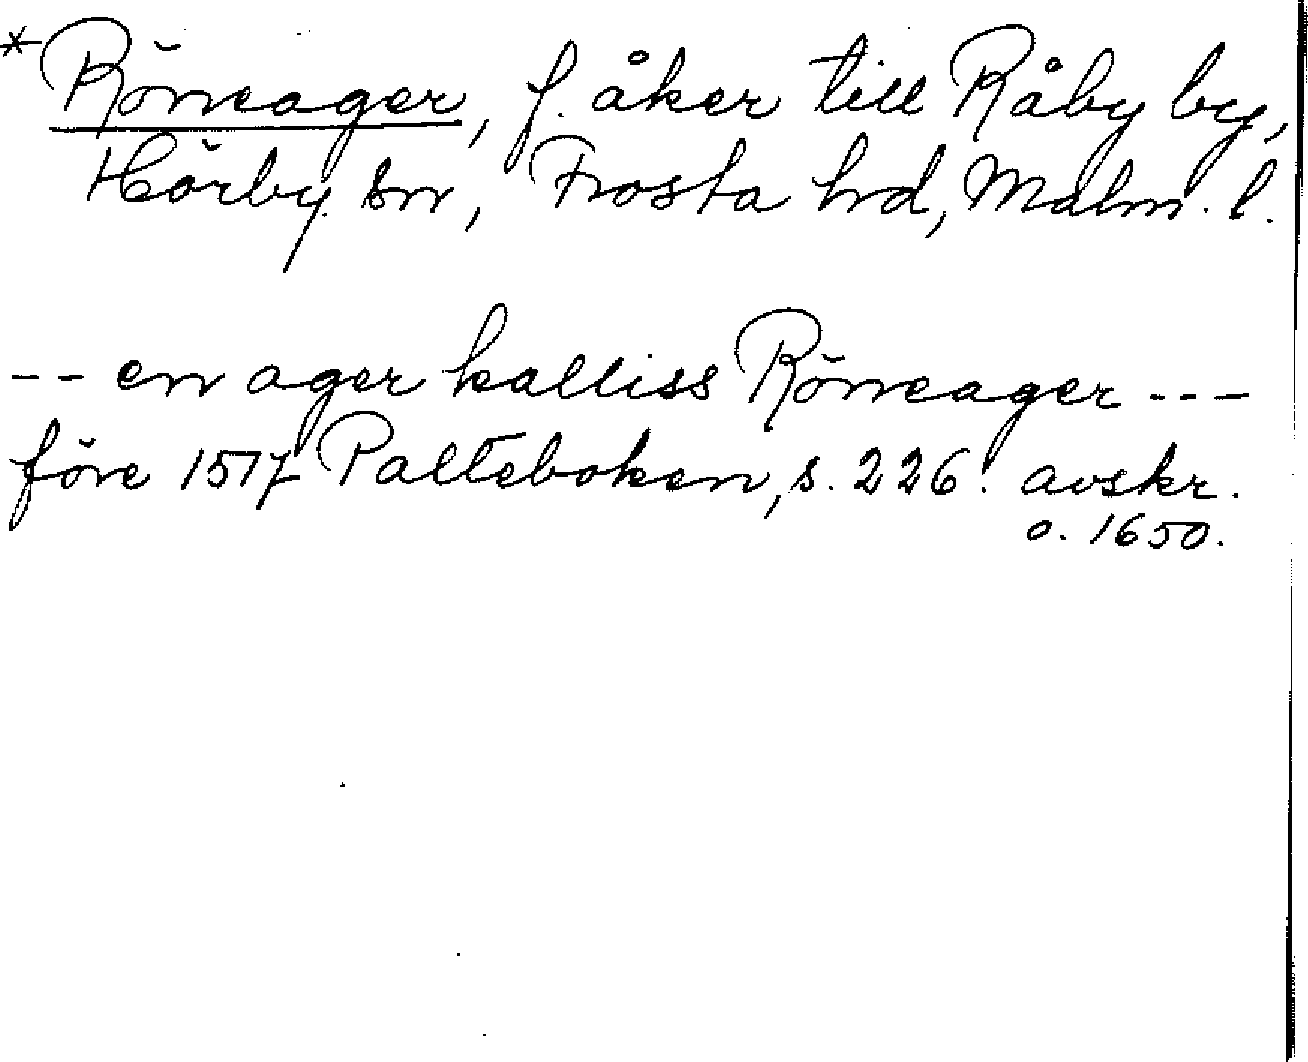 *Röneager, f. åker till Råby by,
Hörby sn, Frosta hd, Malm. l.
-- en ager kalliss Röneager ---
före 1517 Palteboken, s. 226. avskr.
o. 1650.